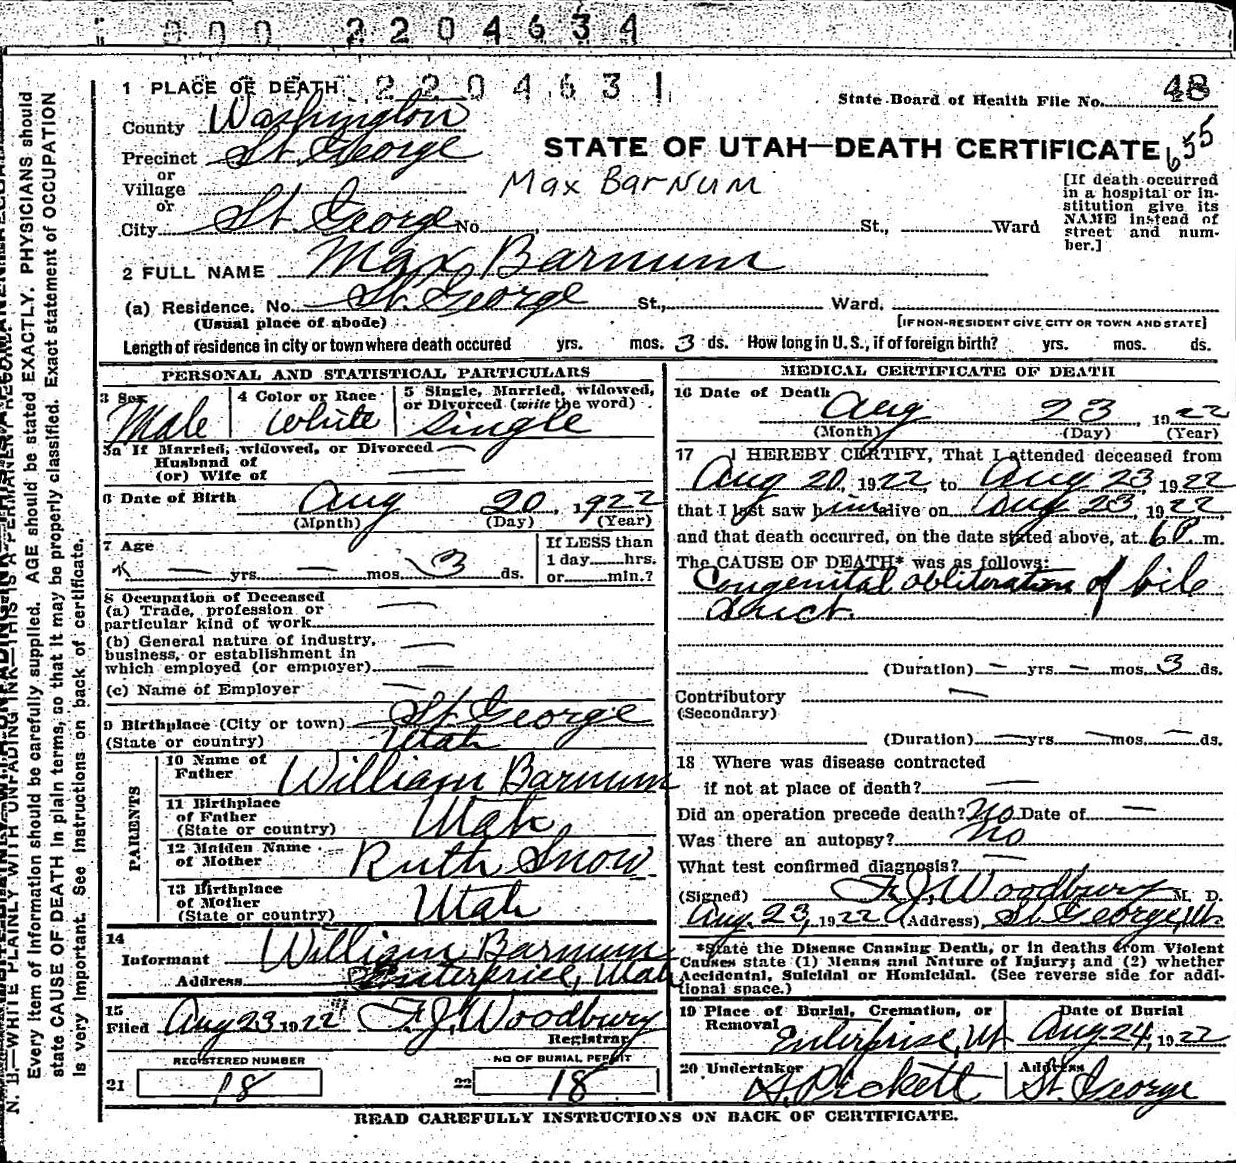 000 2204634
1 PLACE OF DEATH 2204631
State Board of Health File No. 48
County Washington
655
Precinct St. George
STATE OF UTAH—DEATH CERTIFICATE
or
Village
Max Barnum
or
City St. George No. St., Ward
[If death occurred in a hospital or institution give its NAME instead of street and number.]
2 FULL NAME Max Barnum
(a) Residence. No. St. George St., Ward.
(Usual place of abode)
[IF NON-RESIDENT GIVE CITY OR TOWN AND STATE]
Length of residence in city or town where death occured yrs. mos. 3 ds. How long in U. S., if of foreign birth? yrs. mos. ds.
PERSONAL AND STATISTICAL PARTICULARS
3 Sex Male
4 Color or Race White
5 Single, Married, widowed, or Divorced (write the word) Single
3a If Married, widowed, or Divorced —
Husband of
(or) Wife of —
6 Date of Birth Aug 20, 1922
(Month) (Day) (Year)
7 Age — yrs. — mos. 3 ds.
If LESS than
1 day hrs.
or min.?
8 Occupation of Deceased
(a) Trade, profession or
particular kind of work —
(b) General nature of industry,
business, or establishment in
which employed (or employer) —
(c) Name of Employer —
9 Birthplace (City or town) St. George
(State or country) Utah
PARENTS
10 Name of
Father William Barnum
11 Birthplace
of Father
(State or country) Utah
12 Maiden Name
of Mother Ruth Snow
13 Birthplace
of Mother
(State or country) Utah
14
Informant William Barnum
Address Enterprise, Utah
15
Filed Aug 23 1922 F. J. Woodbury
Registrar
REGISTERED NUMBER
21 18
NO OF BURIAL PERMIT
22 18
MEDICAL CERTIFICATE OF DEATH
16 Date of Death Aug 23, 1922
(Month) (Day) (Year)
17 I HEREBY CERTIFY, That I attended deceased from
Aug 20, 1922, to Aug 23, 1922
that I last saw him alive on Aug 23, 1922,
and that death occurred, on the date stated above, at 6 P. m.
The CAUSE OF DEATH* was as follows:
Congenital obliteration of bile
duct.
(Duration) — yrs — mos. 3 ds.
Contributory —
(Secondary)
(Duration) — yrs — mos. — ds.
18 Where was disease contracted
if not at place of death? —
Did an operation precede death? No Date of —
Was there an autopsy? No
What test confirmed diagnosis? —
(Signed) F. J. Woodbury M. D.
Aug. 23, 1922 (Address) St George, Ut.
*State the Disease Causing Death, or in deaths from Violent
Causes state (1) Means and Nature of Injury; and (2) whether
Accidental, Suicidal or Homicidal. (See reverse side for addi-
tional space.)
19 Place of Burial, Cremation, or
Removal Enterprise, Ut
Date of Burial
Aug 24, 1922
20 Undertaker Pickett
Address St. George
READ CAREFULLY INSTRUCTIONS ON BACK OF CERTIFICATE.
N. B.—WRITE PLAINLY WITH UNFADING INK—THIS IS A PERMANENT RECORD
Every item of information should be carefully supplied. AGE should be stated EXACTLY. PHYSICIANS should
state CAUSE OF DEATH in plain terms, so that it may be properly classified. Exact statement of OCCUPATION
is very important. See instructions on back of certificate.